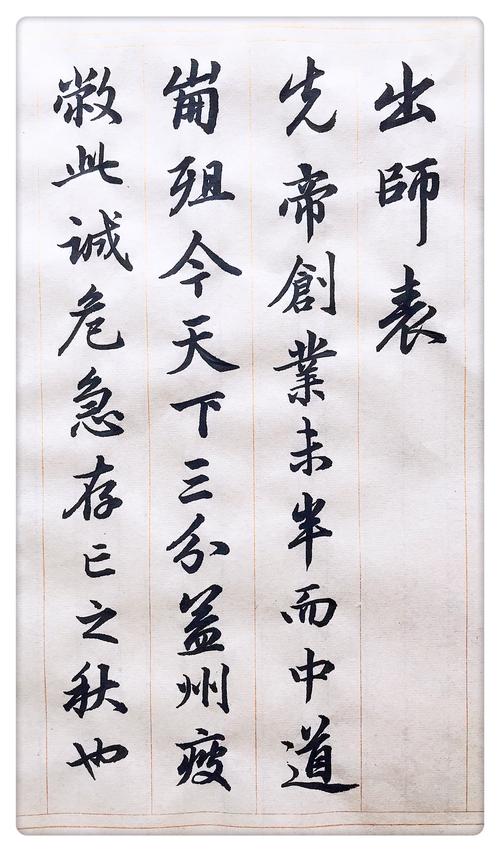 出師表
先帝創業未半而中道
崩殂今天下三分益州疲
敝此誠危急存亡之秋也